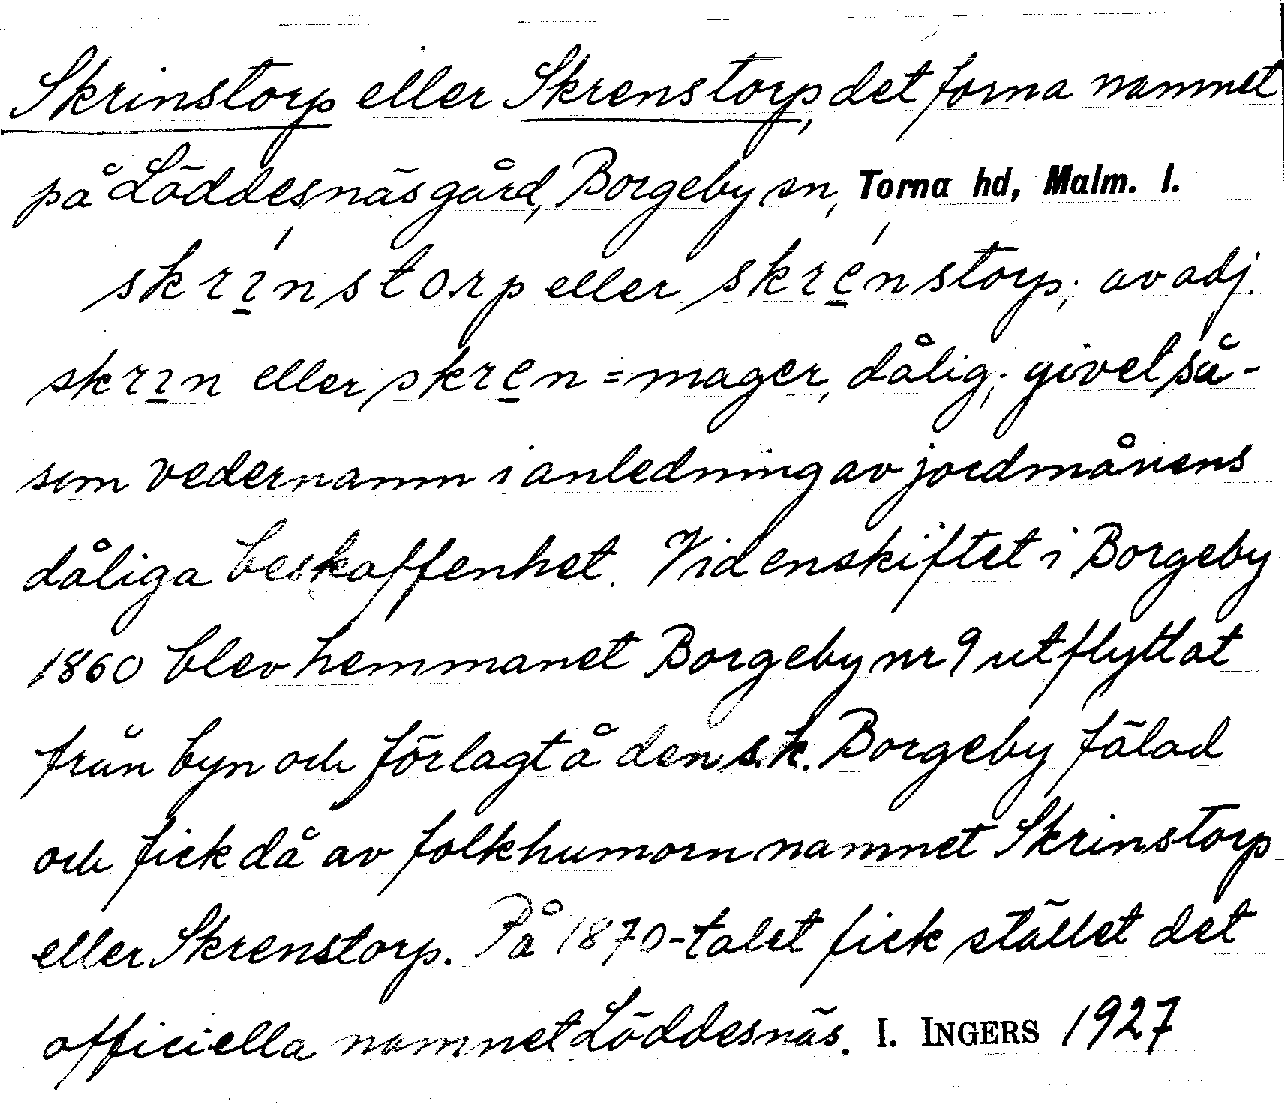 Skrinstorp eller Skrenstorp, det forna namnet
på Löddesnäsgård, Borgeby sn, Torna hd, Malm. l.
skrinstorp eller skrenstorp; av adj.
skrin eller skren = mager, dålig; givet så-
som vedernamn i anledning av jordmånens
dåliga beskaffenhet. Vid enskiftet i Borgeby
1860 blev hemmanet Borgeby nr 9 utflyttat
från byn och förlagt å den s.k. Borgeby fälad
och fick då av folkhumorn namnet Skrinstorp
eller Skrenstorp. På 1870-talet fick stället det
officiella namnet Löddesnäs. I. INGERS 1927